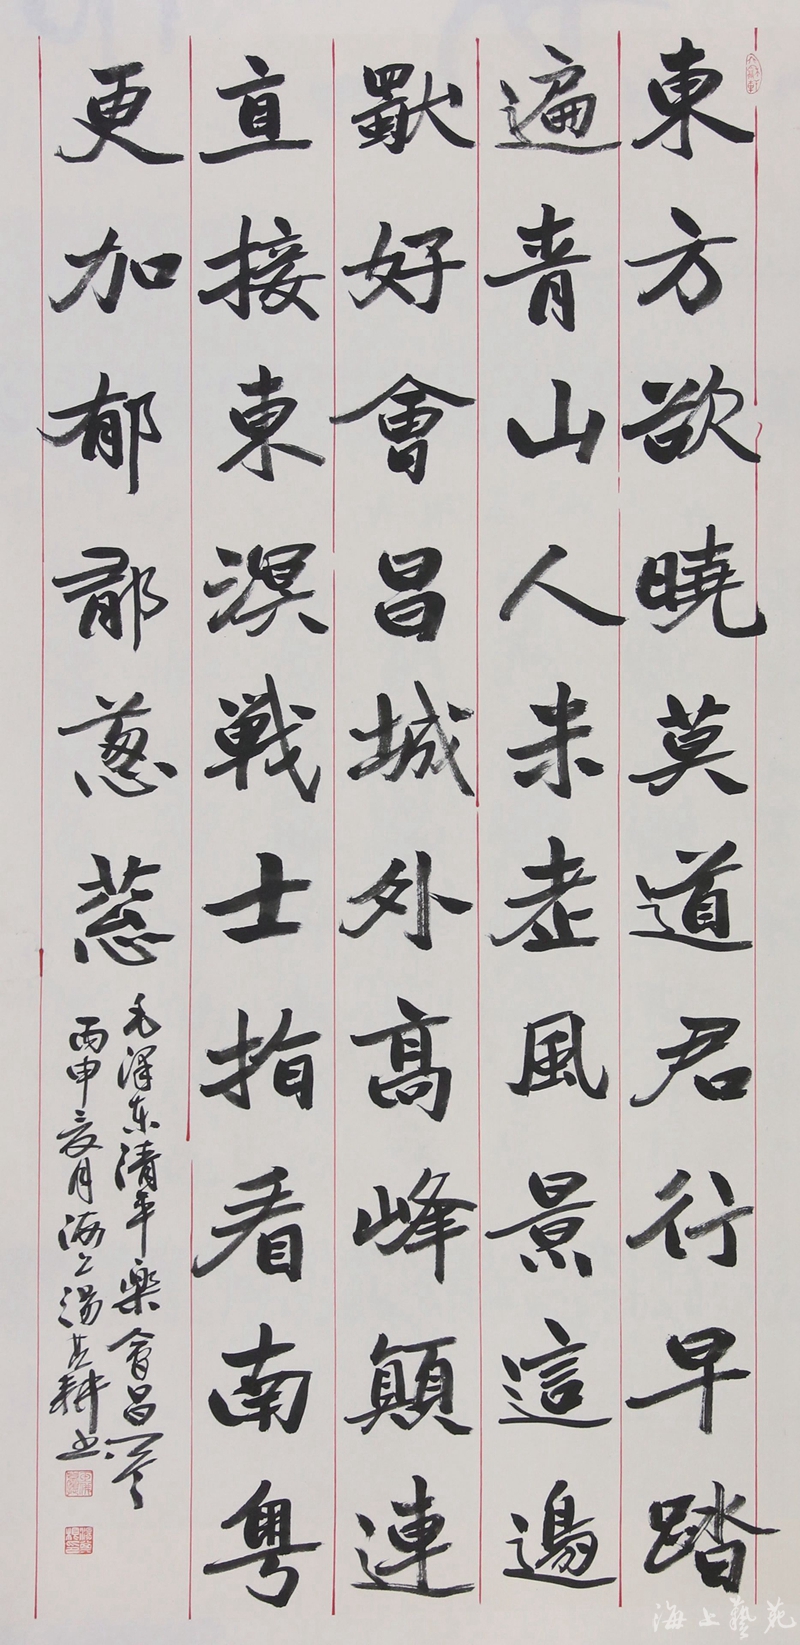 東方欲曉莫道君行早踏
遍青山人未老風景這邊
獨好會昌城外高峰顛連
直接東溟戰士指看南粵
更加郁郁蔥蔥
毛澤东清平樂會昌
丙申夏月海上湯其耕书
海上藝苑